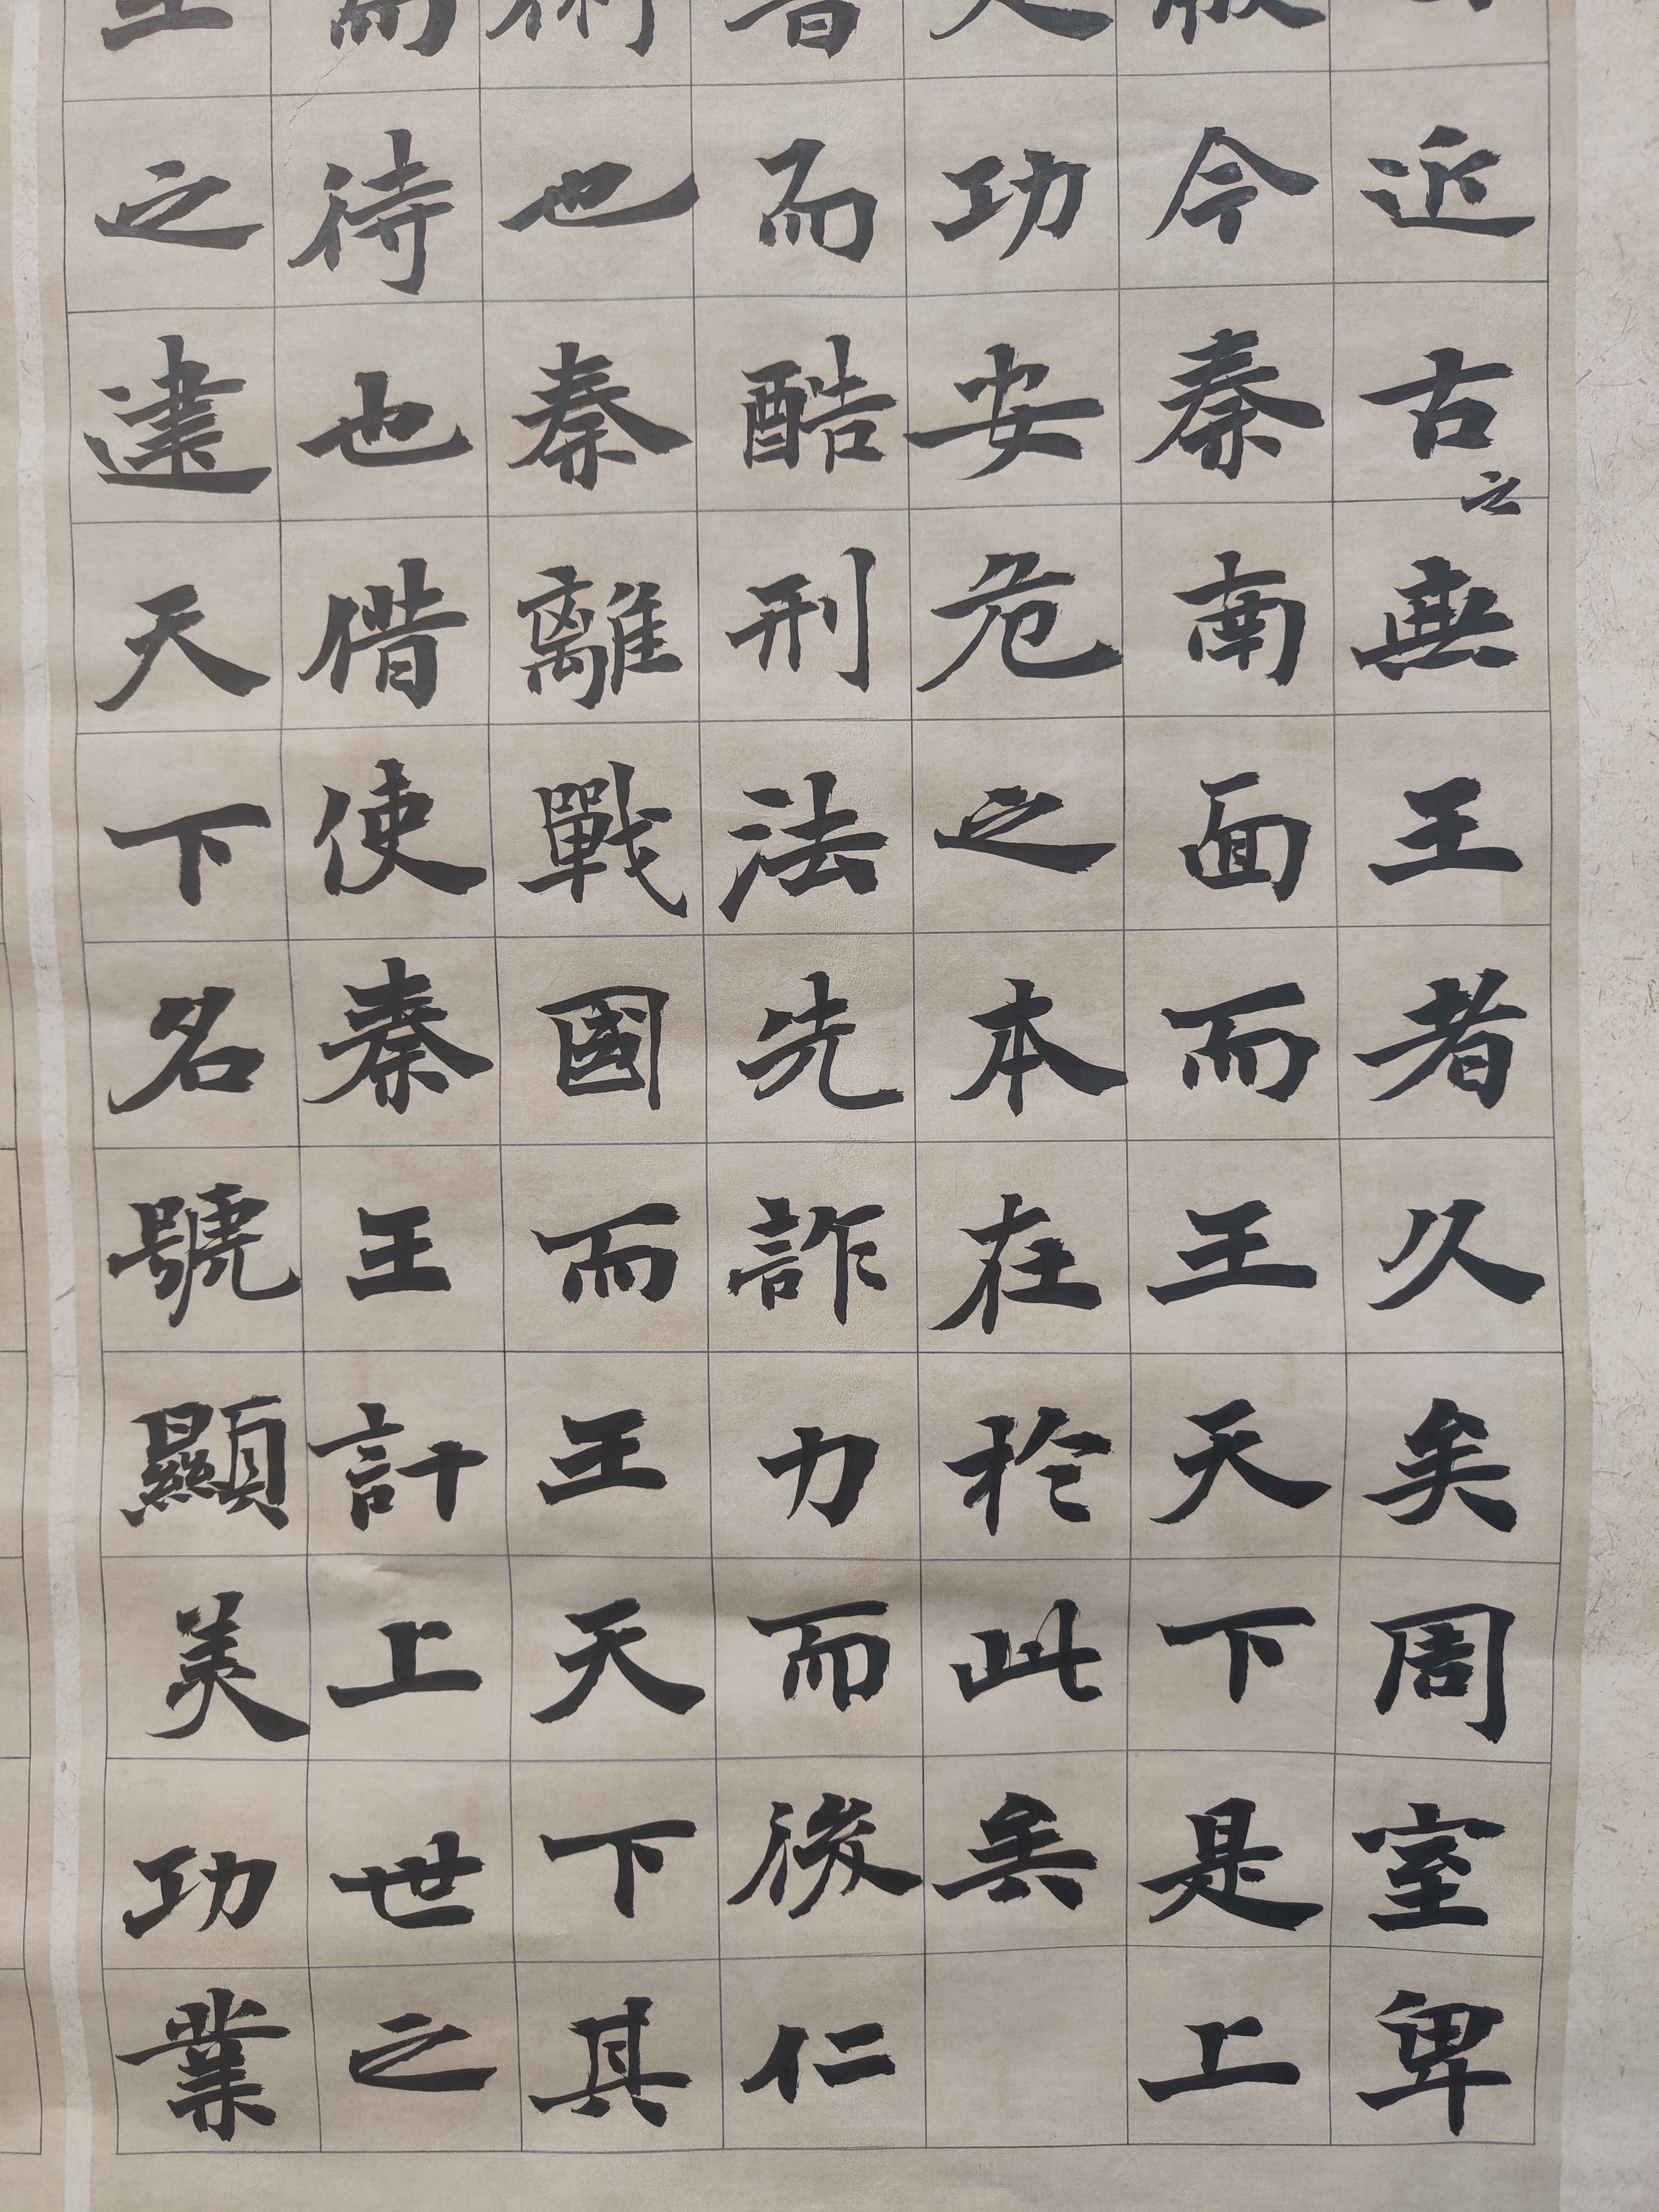 近古之無王者久矣周室卑
今秦南面而王天下是上
定功安危之本在於此矣
書而酷刑法先詐力而後仁
術也秦離戰國而王天下其
而待也借使秦王計上世之
王之建天下名號顯美功業